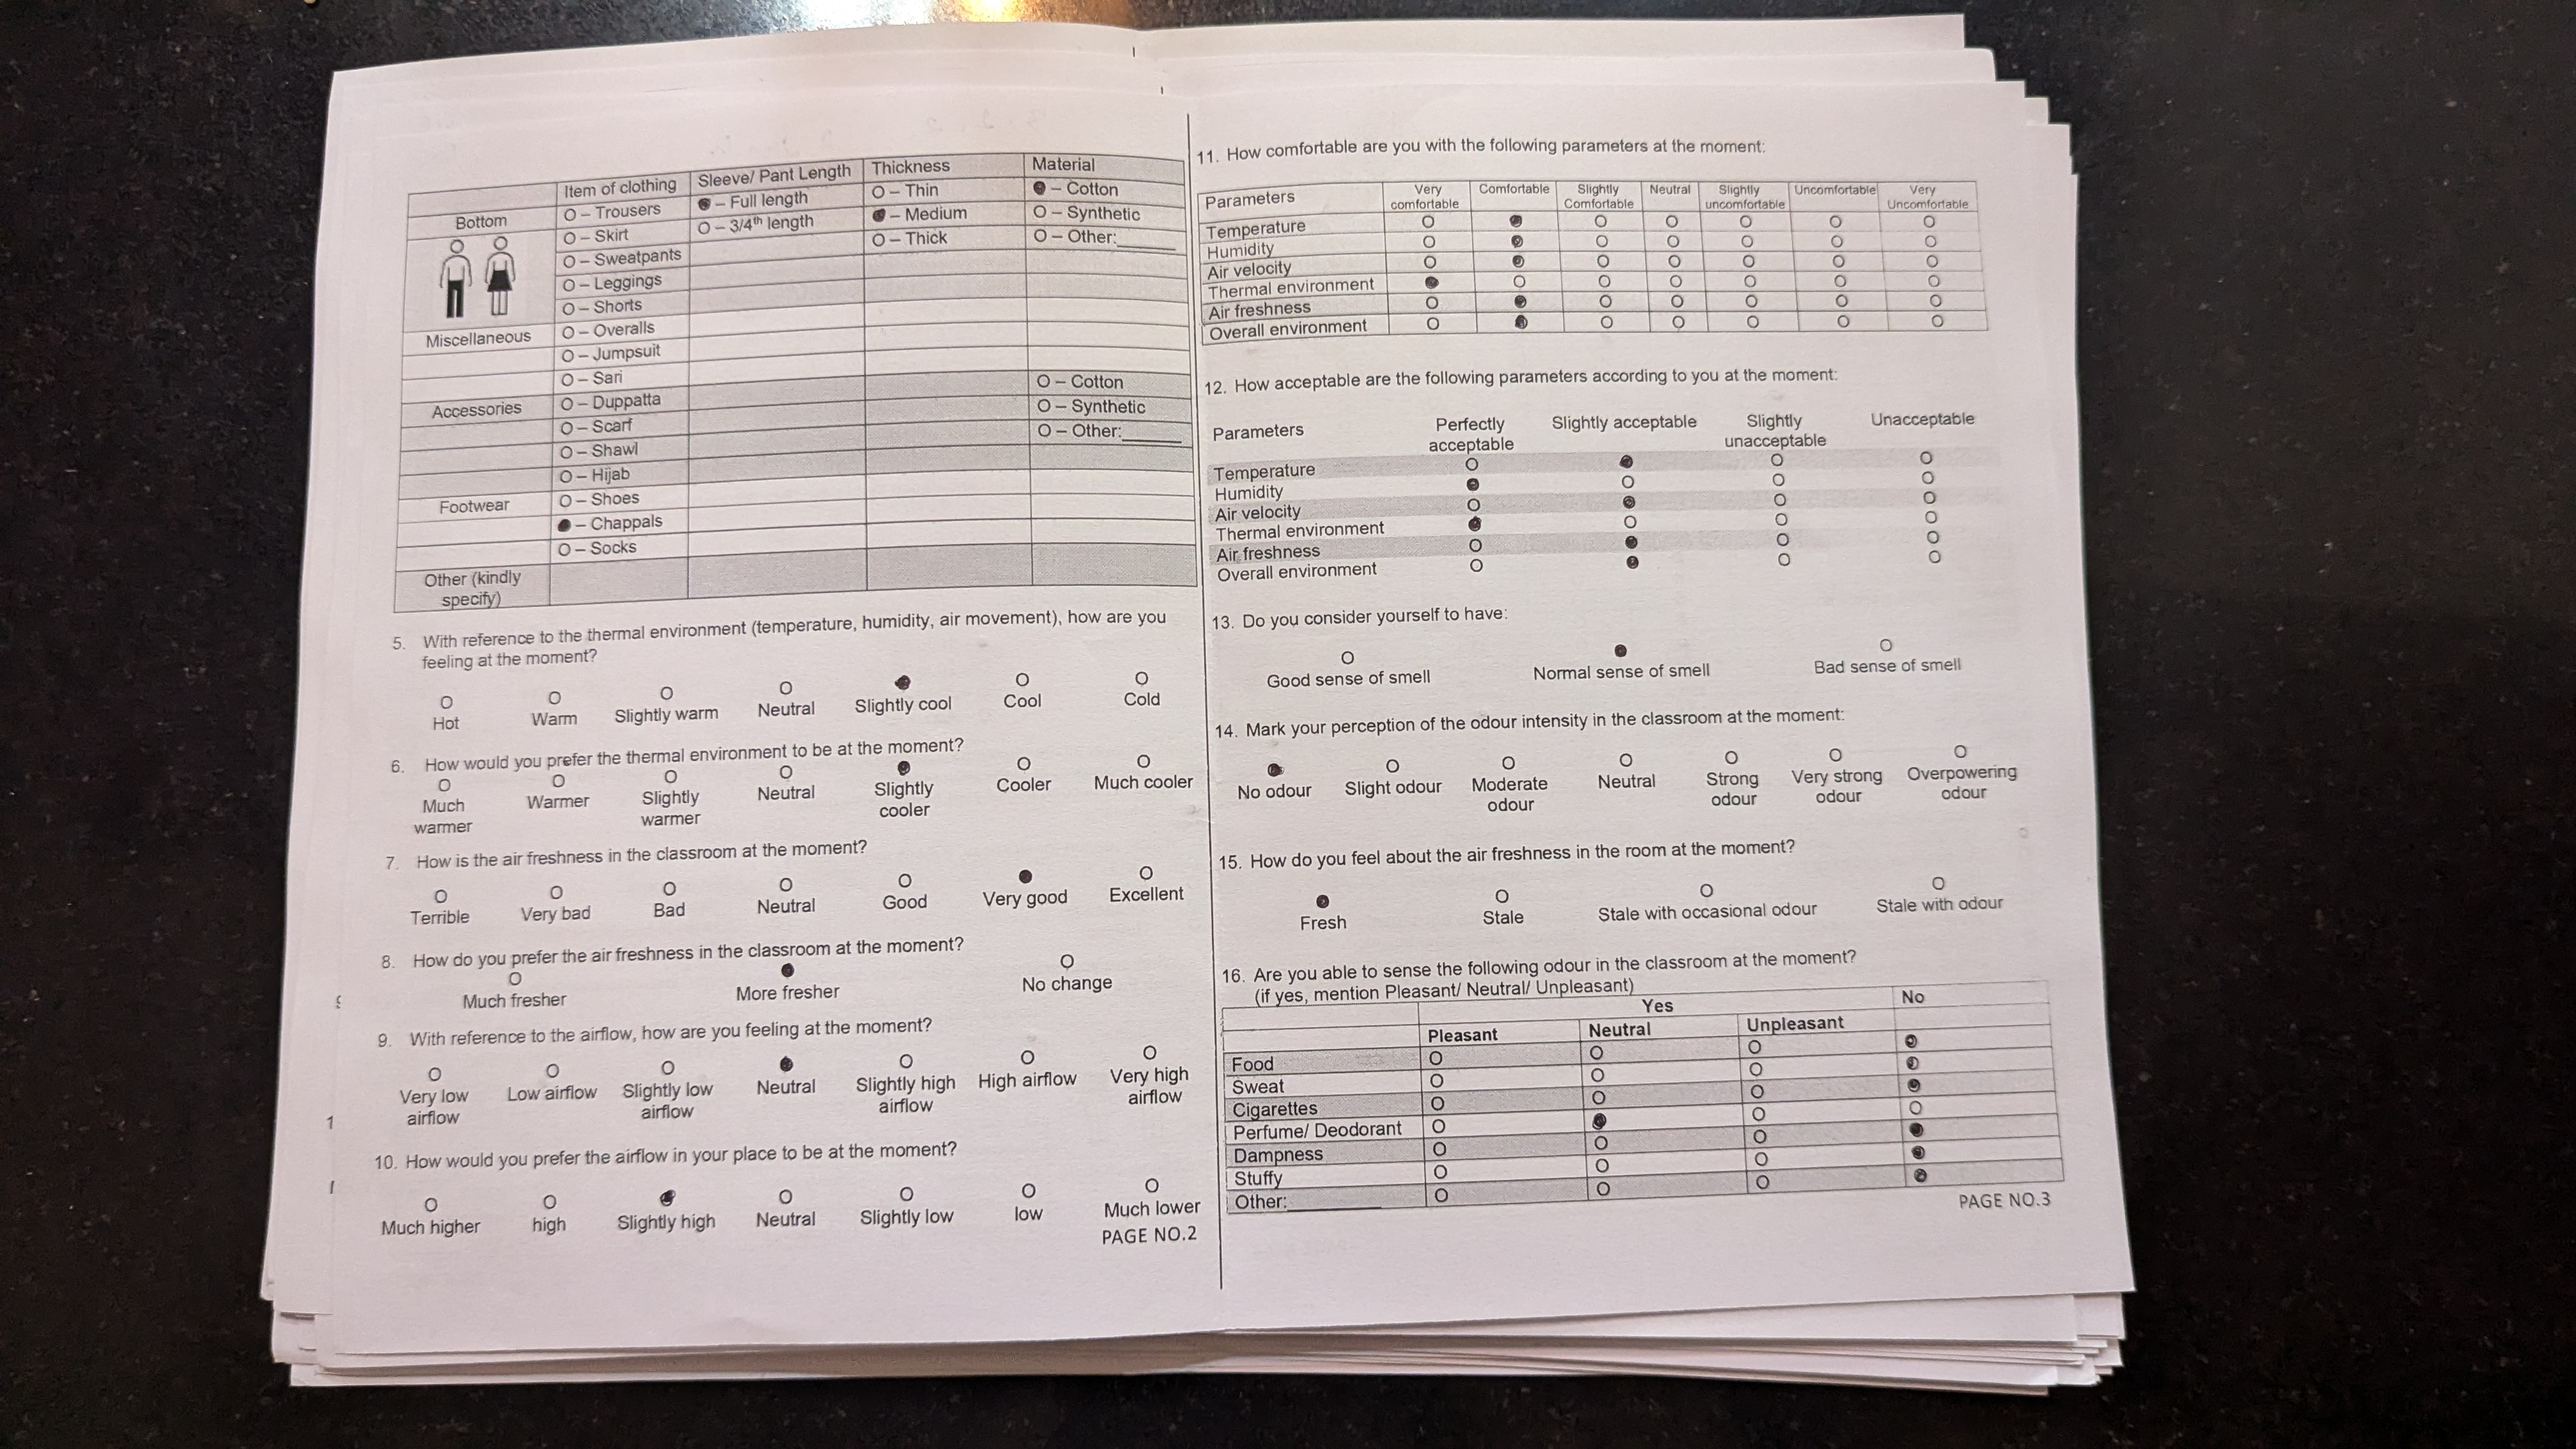 Item of clothing Sleeve/ Pant Length Thickness Material
Bottom O – Trousers ● – Full length O – Thin ● – Cotton
O – Skirt O – 3/4th length ● – Medium O – Synthetic
O – Sweatpants O – Thick O – Other:______
O – Leggings
O – Shorts
Miscellaneous O – Overalls
O – Jumpsuit
O – Sari O – Cotton
Accessories O – Duppatta O – Synthetic
O – Scarf O – Other:______
O – Shawl
O – Hijab
Footwear O – Shoes
● – Chappals
O – Socks
Other (kindly
specify)
5. With reference to the thermal environment (temperature, humidity, air movement), how are you
feeling at the moment?
O O O O ● O O
Hot Warm Slightly warm Neutral Slightly cool Cool Cold
6. How would you prefer the thermal environment to be at the moment?
O O O O ● O O
Much Warmer Slightly Neutral Slightly Cooler Much cooler
warmer warmer cooler
7. How is the air freshness in the classroom at the moment?
O O O O O ● O
Terrible Very bad Bad Neutral Good Very good Excellent
8. How do you prefer the air freshness in the classroom at the moment?
O ● O
Much fresher More fresher No change
9. With reference to the airflow, how are you feeling at the moment?
O O O ● O O O
Very low Low airflow Slightly low Neutral Slightly high High airflow Very high
airflow airflow airflow airflow
10. How would you prefer the airflow in your place to be at the moment?
O O ● O O O O
Much higher high Slightly high Neutral Slightly low low Much lower
PAGE NO.2
11. How comfortable are you with the following parameters at the moment:
Parameters Very Comfortable Slightly Neutral Slightly Uncomfortable Very
comfortable Comfortable uncomfortable Uncomfortable
Temperature O ● O O O O O
Humidity O ● O O O O O
Air velocity O ● O O O O O
Thermal environment ● O O O O O O
Air freshness O ● O O O O O
Overall environment O ● O O O O O
12. How acceptable are the following parameters according to you at the moment:
Parameters Perfectly Slightly acceptable Slightly Unacceptable
acceptable unacceptable
Temperature O ● O O
Humidity ● O O O
Air velocity O ● O O
Thermal environment ● O O O
Air freshness O ● O O
Overall environment O ● O O
13. Do you consider yourself to have:
O ● O
Good sense of smell Normal sense of smell Bad sense of smell
14. Mark your perception of the odour intensity in the classroom at the moment:
● O O O O O O
No odour Slight odour Moderate Neutral Strong Very strong Overpowering
odour odour odour odour
15. How do you feel about the air freshness in the room at the moment?
● O O O
Fresh Stale Stale with occasional odour Stale with odour
16. Are you able to sense the following odour in the classroom at the moment?
(if yes, mention Pleasant/ Neutral/ Unpleasant)
Yes No
Pleasant Neutral Unpleasant
Food O O O ●
Sweat O O O ●
Cigarettes O O O ●
Perfume/ Deodorant O ● O O
Dampness O O O ●
Stuffy O O O ●
Other:__________ O O O ●
PAGE NO.3